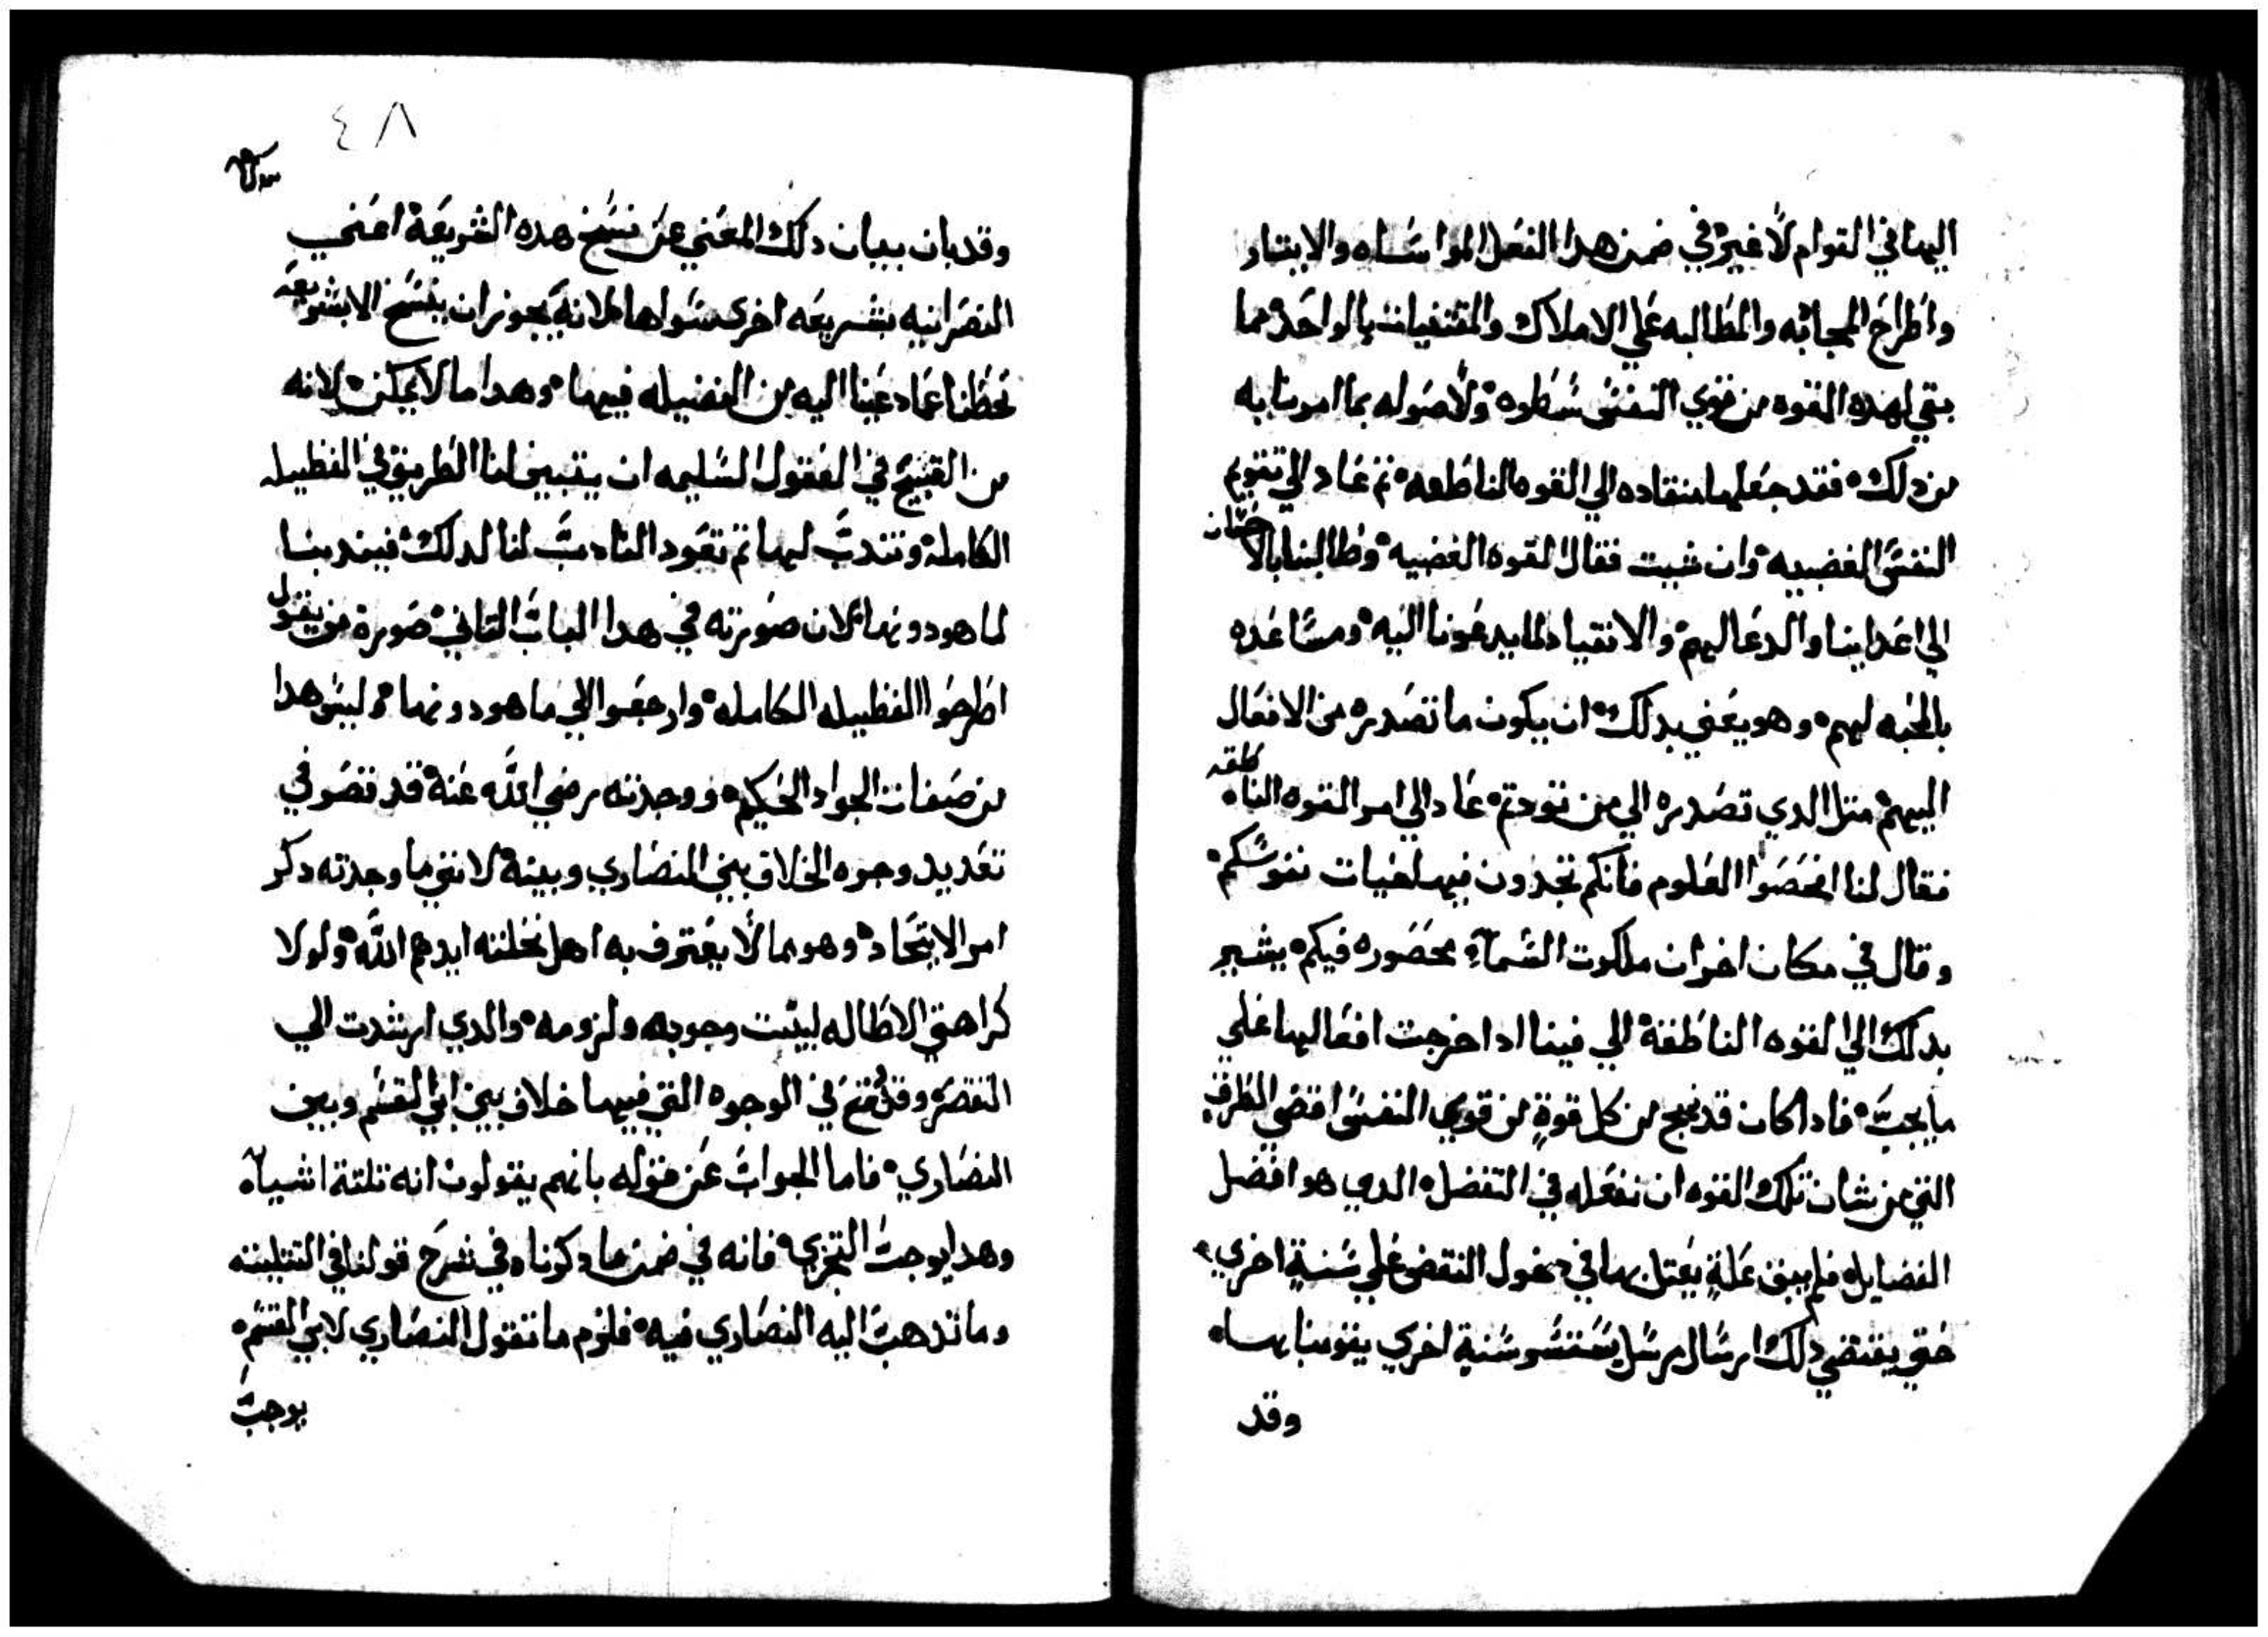 اليها في القوام لا غير وفي ضمن هدا الفعل المواساه والايتار
واطراح المجاتبه والمطالبه علي الاملاك والمقتنيات بالواحد فما
بقي لهده القوه من قوي النفس سطوه ولا صوله بما امرنا به
من دلك فقد جعلها منقاده الي القوه الناطعه تم عاد الي تقويم
النفس الغضبيه وان شيت فقال القوه الغضبيه وطالبنا بالاحسان
الي اعداينا والدعا اليهم والانقياد لما يدعونا اليه ومساعده
بالمحبه ليهم وهو يعني بدلك ان يكون ما تصدره من الافعال
اليهم متل الدي تصدره الي من تودتم عاد الي امر القوه الناطقه
فقال لنا افحصوا العلوم فانكم تجدون فيها حيات نفوسكم
وقال في مكان اخر ان ملكوت السمآء محصوره فيكم يشير
بدلك الي القوه الناطقة الي فينا ادا خرجت افعاليها علي
ما يجب فادا كان قد نهج من كل قوة من قوي النفس اقصي الطرق
التي من شان تلك القوه ان نفعله في التفضل الدي هو افضل
الفضايل فلم يبق علة يعتل بها في دخول النقص علي سنة اخري
حتي يقتضي دلك ارسال مرسل يستسو سنة اخري يقومنا بها
وقد
٤٨
وقد بان ببيان دلك المعني عن نسخ هده الشريعة اعني
النصرانيه بشريعه اخري سواها لانه يجوز ان ينسخ الا بشريعه
تحطنا عما دعينا اليه من الفضيله فيها وهدا ما لا يمكن لانه
من القبيح في العقول السليمه ان يتبين لنا الطريق في الفظيله
الكاملة ونتدب ليها تم تعود النادب لنا لدلك فيندبنا
لما هو دونها لان صورته في هدا الباب التاني صورة من يقول
اطرحوا الفظيله الكامله وارجعوا الي ما هو دونها وليس هدا
من صفات الجواد الحكيم ووجدته رضي الله عنه قد تصرف في
تعديد وجوه الخلاف بين النصاري وبينه لانني ما وجدته دكر
امر الايتحاد وهو مما لا يعترف به اهل نحلته ايدهم الله ولولا
كراهتي الاطاله لبينت وجوبه ولزومه والدي ارشدت الي
التقصير وقد وقع في الوجوه التي فيها خلاف بين ابي القسم وبين
النصاري فاما الجواب عن قوله بانهم يقولون انه تلتة اشيآء
وهدا يوجب التجزي فانه في ضمن ما دكرناه في شرح قولنا في التتليته
وما تدهب اليه النصاري فيه فلزم ما تقول النصاري لابي القسم
يوجب